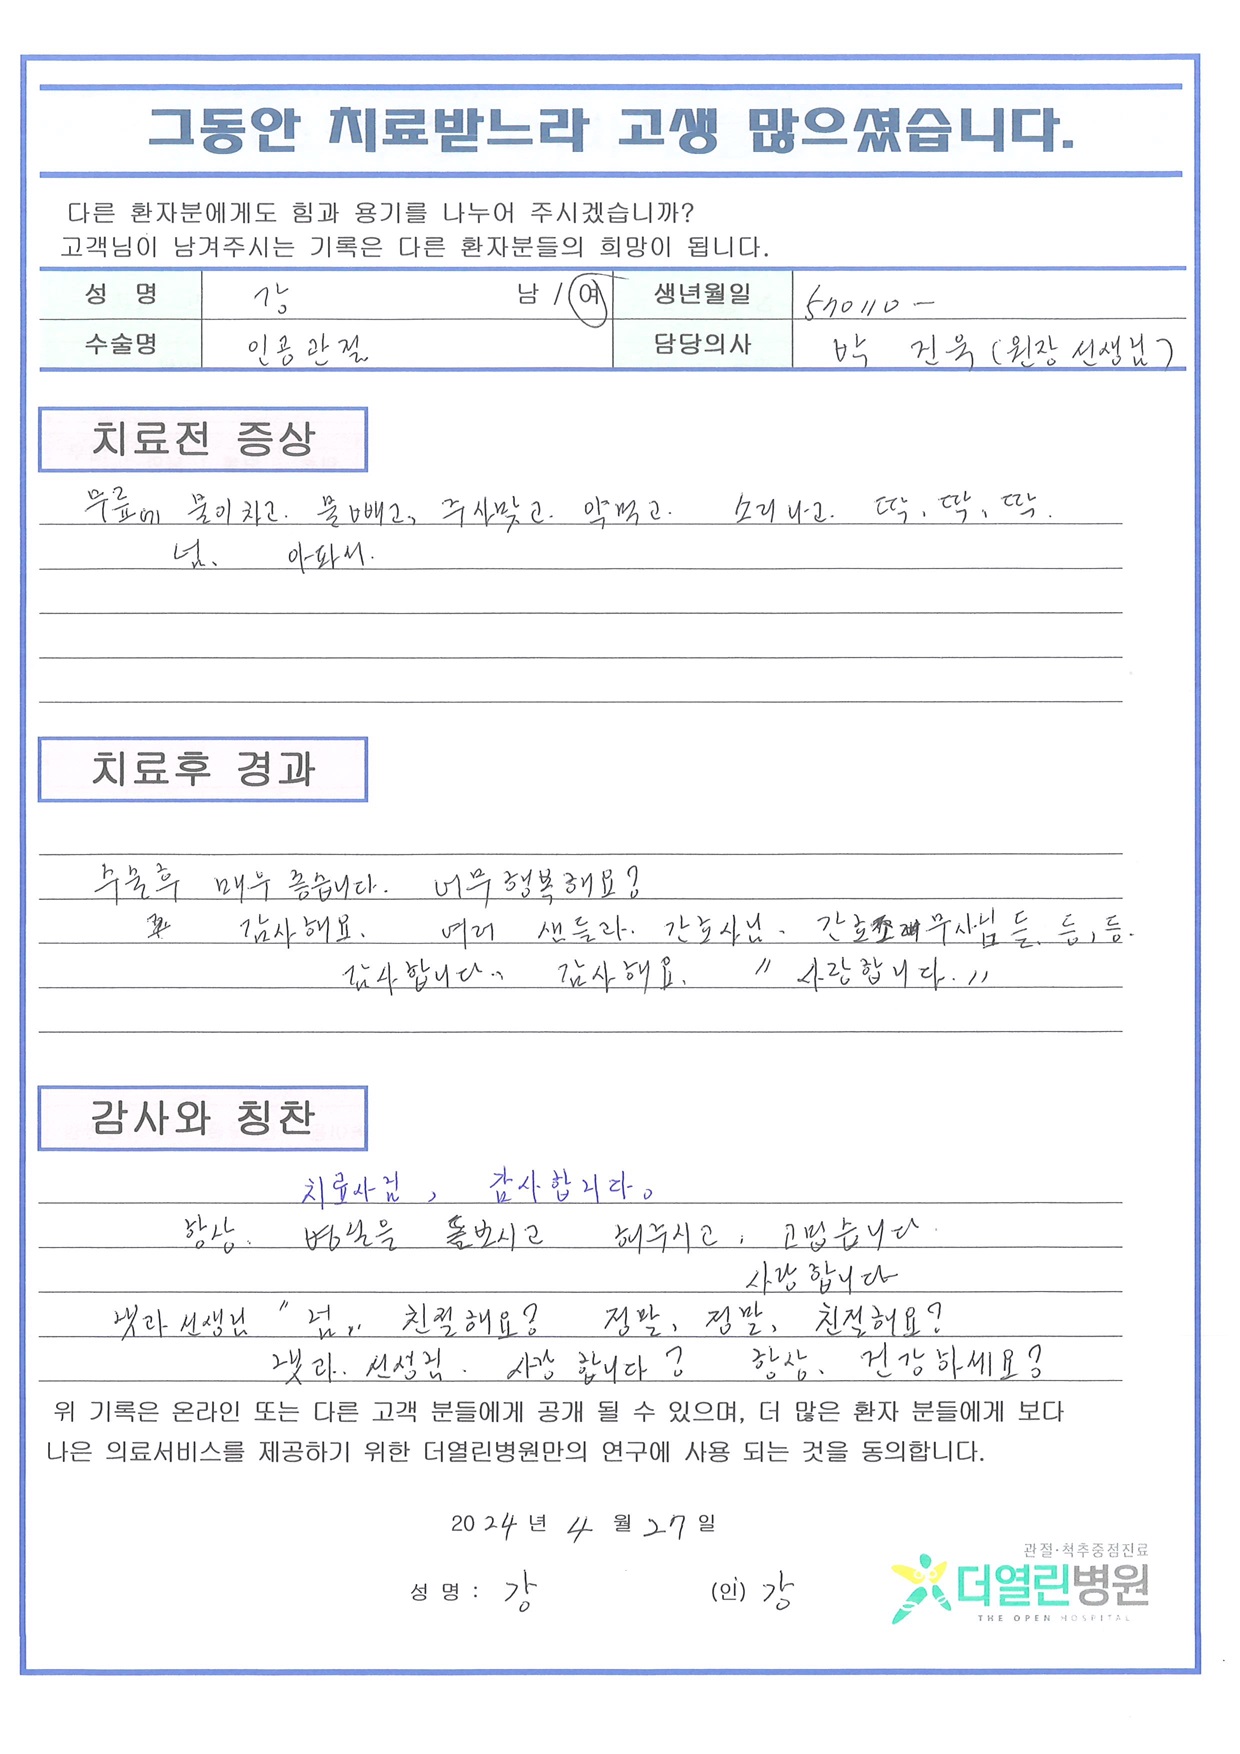 그동안 치료받느라 고생 많으셨습니다.
다른 환자분에게도 힘과 용기를 나누어 주시겠습니까?
고객님이 남겨주시는 기록은 다른 환자분들의 희망이 됩니다.
성 명 강 남 / 여 생년월일 570110 -
수술명 인공관절 담당의사 박 진욱 (원장 선생님)
치료전 증상
무릎에 물이차고. 물빼고, 주사맞고. 약먹고. 소리나고. 딱, 딱, 딱.
넘. 아파서.
치료후 경과
수술후 매우 좋습니다. 너무행복해요?
감사해요. 여러 샌들라. 간호사님. 간호조무사님들. 등, 등.
감사합니다.. 감사해요. " 사랑합니다. "
감사와 칭찬
치료사님, 감사합니다.
항상. 병실을 돌보시고 해주시고, 고맙습니다
사랑합니다
선생님 " 넘,, 친절해요? 정말, 정말, 친절해요?
선성님. 사랑합니다? 항상. 건강하세요?
위 기록은 온라인 또는 다른 고객 분들에게 공개 될 수 있으며, 더 많은 환자 분들에게 보다
나은 의료서비스를 제공하기 위한 더열린병원만의 연구에 사용 되는 것을 동의합니다.
2024 년 4 월 27 일
관절·척추중점진료
더열린병원
THE OPEN HOSPITAL
성 명 : 강 (인) 강